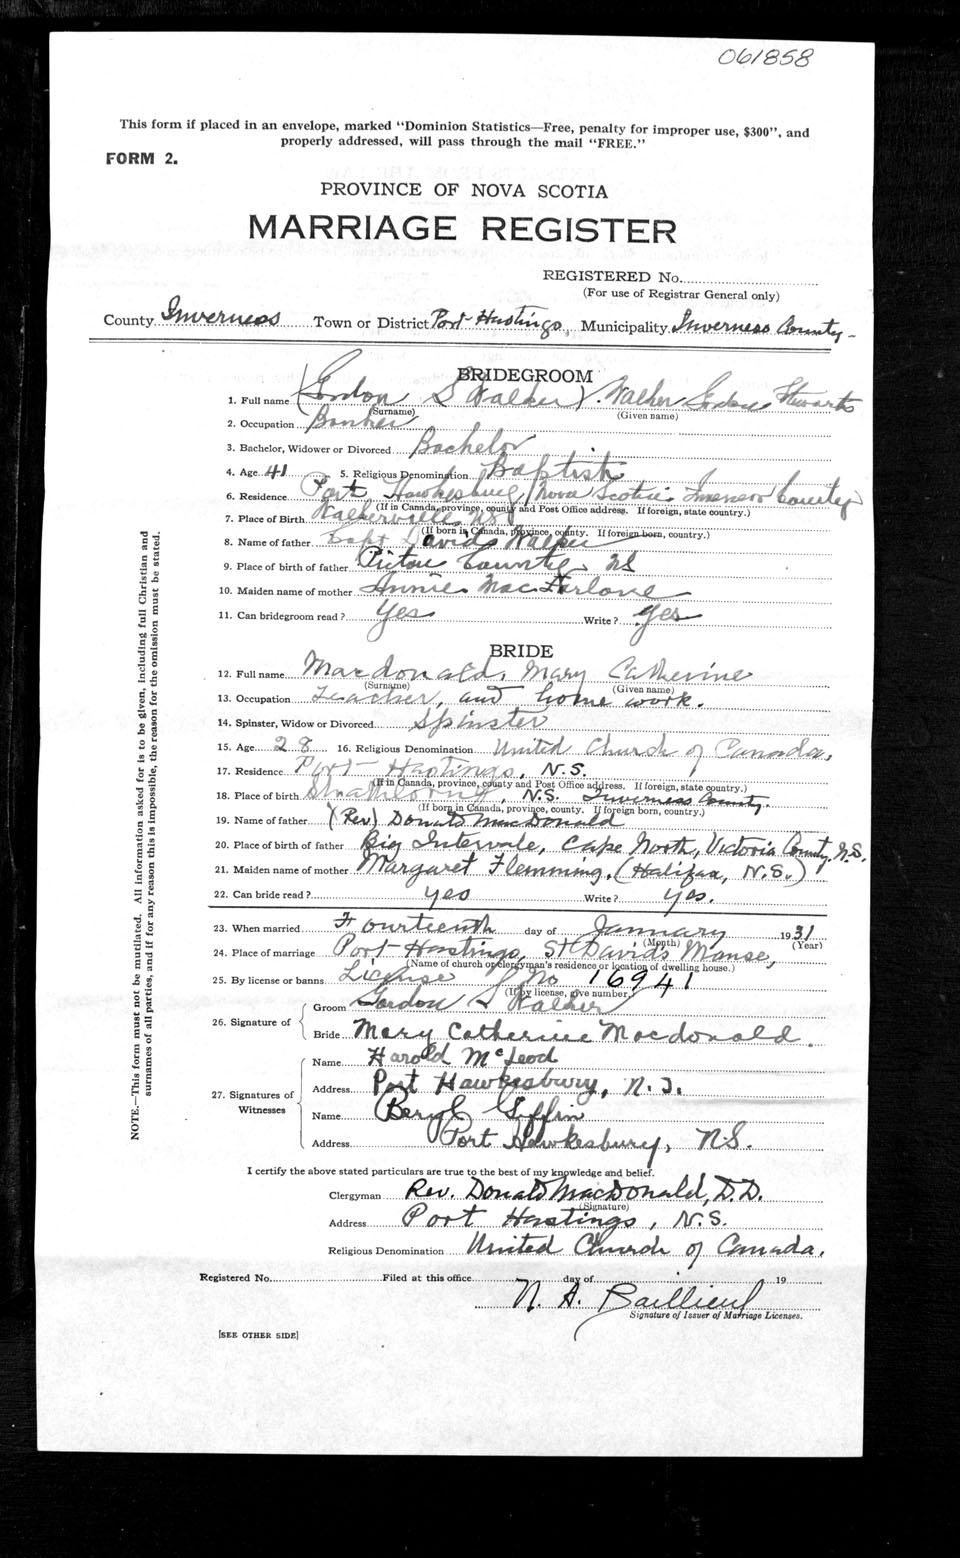 061858
This form if placed in an envelope, marked "Dominion Statistics—Free, penalty for improper use, $300", and
properly addressed, will pass through the mail "FREE."
FORM 2.
PROVINCE OF NOVA SCOTIA
MARRIAGE REGISTER
REGISTERED No.
(For use of Registrar General only)
County Inverness Town or District Port Hastings, Municipality Inverness County
BRIDEGROOM
1. Full name (Gordon S Walker). Walker Gordon Stewart
(Surname) (Given name)
2. Occupation Banker
3. Bachelor, Widower or Divorced Bachelor
4. Age 41 5. Religious Denomination Baptist
6. Residence Port Hawkesbury, Nova Scotia Inverness County
(If in Canada, province, county and Post Office address. If foreign, state country.)
7. Place of Birth Walkerville NS
(If born in Canada, province, county. If foreign born, country.)
8. Name of father Capt David Walker
9. Place of birth of father Pictou County NS
10. Maiden name of mother Annie MacFarlane
11. Can bridegroom read? Yes Write? yes
BRIDE
12. Full name Macdonald, Mary Catherine
(Surname) (Given name)
13. Occupation Teacher, and home work.
14. Spinster, Widow or Divorced Spinster
15. Age 28 16. Religious Denomination United Church of Canada,
17. Residence Port Hastings, N.S.
(If in Canada, province, county and Post Office address. If foreign, state country.)
18. Place of birth Strathlorne, N.S. Inverness County.
(If born in Canada, province, county. If foreign born, country.)
19. Name of father (Rev) Donald MacDonald
20. Place of birth of father Big Intervale, Cape North, Victoria County, N.S.
21. Maiden name of mother Margaret Flemming, (Halifax, N.S.)
22. Can bride read? yes Write? yes.
23. When married Fourteenth day of January 1931
(Month) (Year)
24. Place of marriage Port Hastings, St David's Manse,
(Name of church or clergyman's residence or location of dwelling house.)
25. By license or banns License No 16941
(If by license, give number.)
26. Signature of Groom Gordon S Walker
Bride Mary Catherine Macdonald.
27. Signatures of Witnesses
Name Harold McLeod
Address Port Hawkesbury, N.S.
Name Beryl Giffin
Address Port Hawkesbury, N.S.
I certify the above stated particulars are true to the best of my knowledge and belief.
Clergyman Rev. Donald MacDonald, D.D.
(Signature)
Address Port Hastings, N.S.
Religious Denomination United Church of Canada.
Registered No. Filed at this office day of 19
N. A. Baillieul
Signature of Issuer of Marriage Licenses.
[SEE OTHER SIDE]
NOTE.—This form must not be mutilated. All information asked for is to be given, including full Christian and
surnames of all parties, and if for any reason this is impossible, the reason for the omission must be stated.